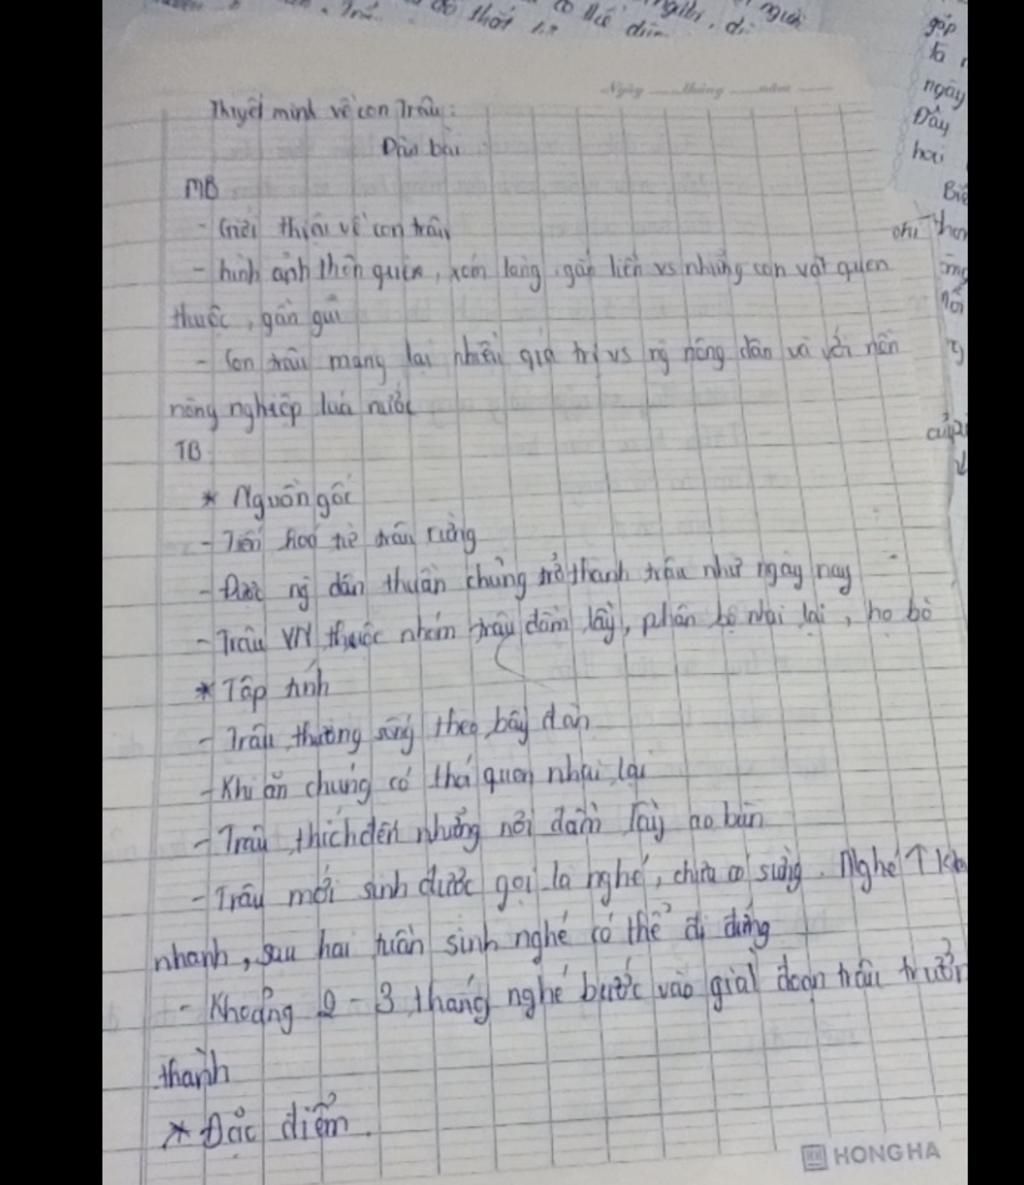 Ngày tháng năm
Thuyết minh về con Trâu:
Dàn bài
MB
- Giới thiệu về con trâu
- hình ảnh thôn quên, xóm làng gắn liền vs những con vật quen
thuộc, gần gũi
- Con trâu mang lại nhiều giá trị vs ng nông dân và với nền
nông nghiệp lúa nước
TB
* Nguồn gốc
- Tiến hoá từ trâu rừng
- Được ng dân thuần chủng trở thành trâu như ngày nay
- Trâu VN thuộc nhóm trâu đầm lầy, phân bộ nhai lại, họ bò
* Tập tính
- Trâu thường sống theo bầy đàn
- Khi ăn chúng có thói quen nhai lại
- Trâu thích đến những nơi đầm lầy ao bùn
- Trâu mới sinh được gọi là nghé, chưa có sừng. Nghé ↑
nhanh, sau hai tuần sinh nghé có thể đi đứng
- Khoảng 2 - 3 tháng nghé bước vào giai đoạn trâu trưởn
thành
* Đặc điểm.
HONG HA
góp
ngày
Đây